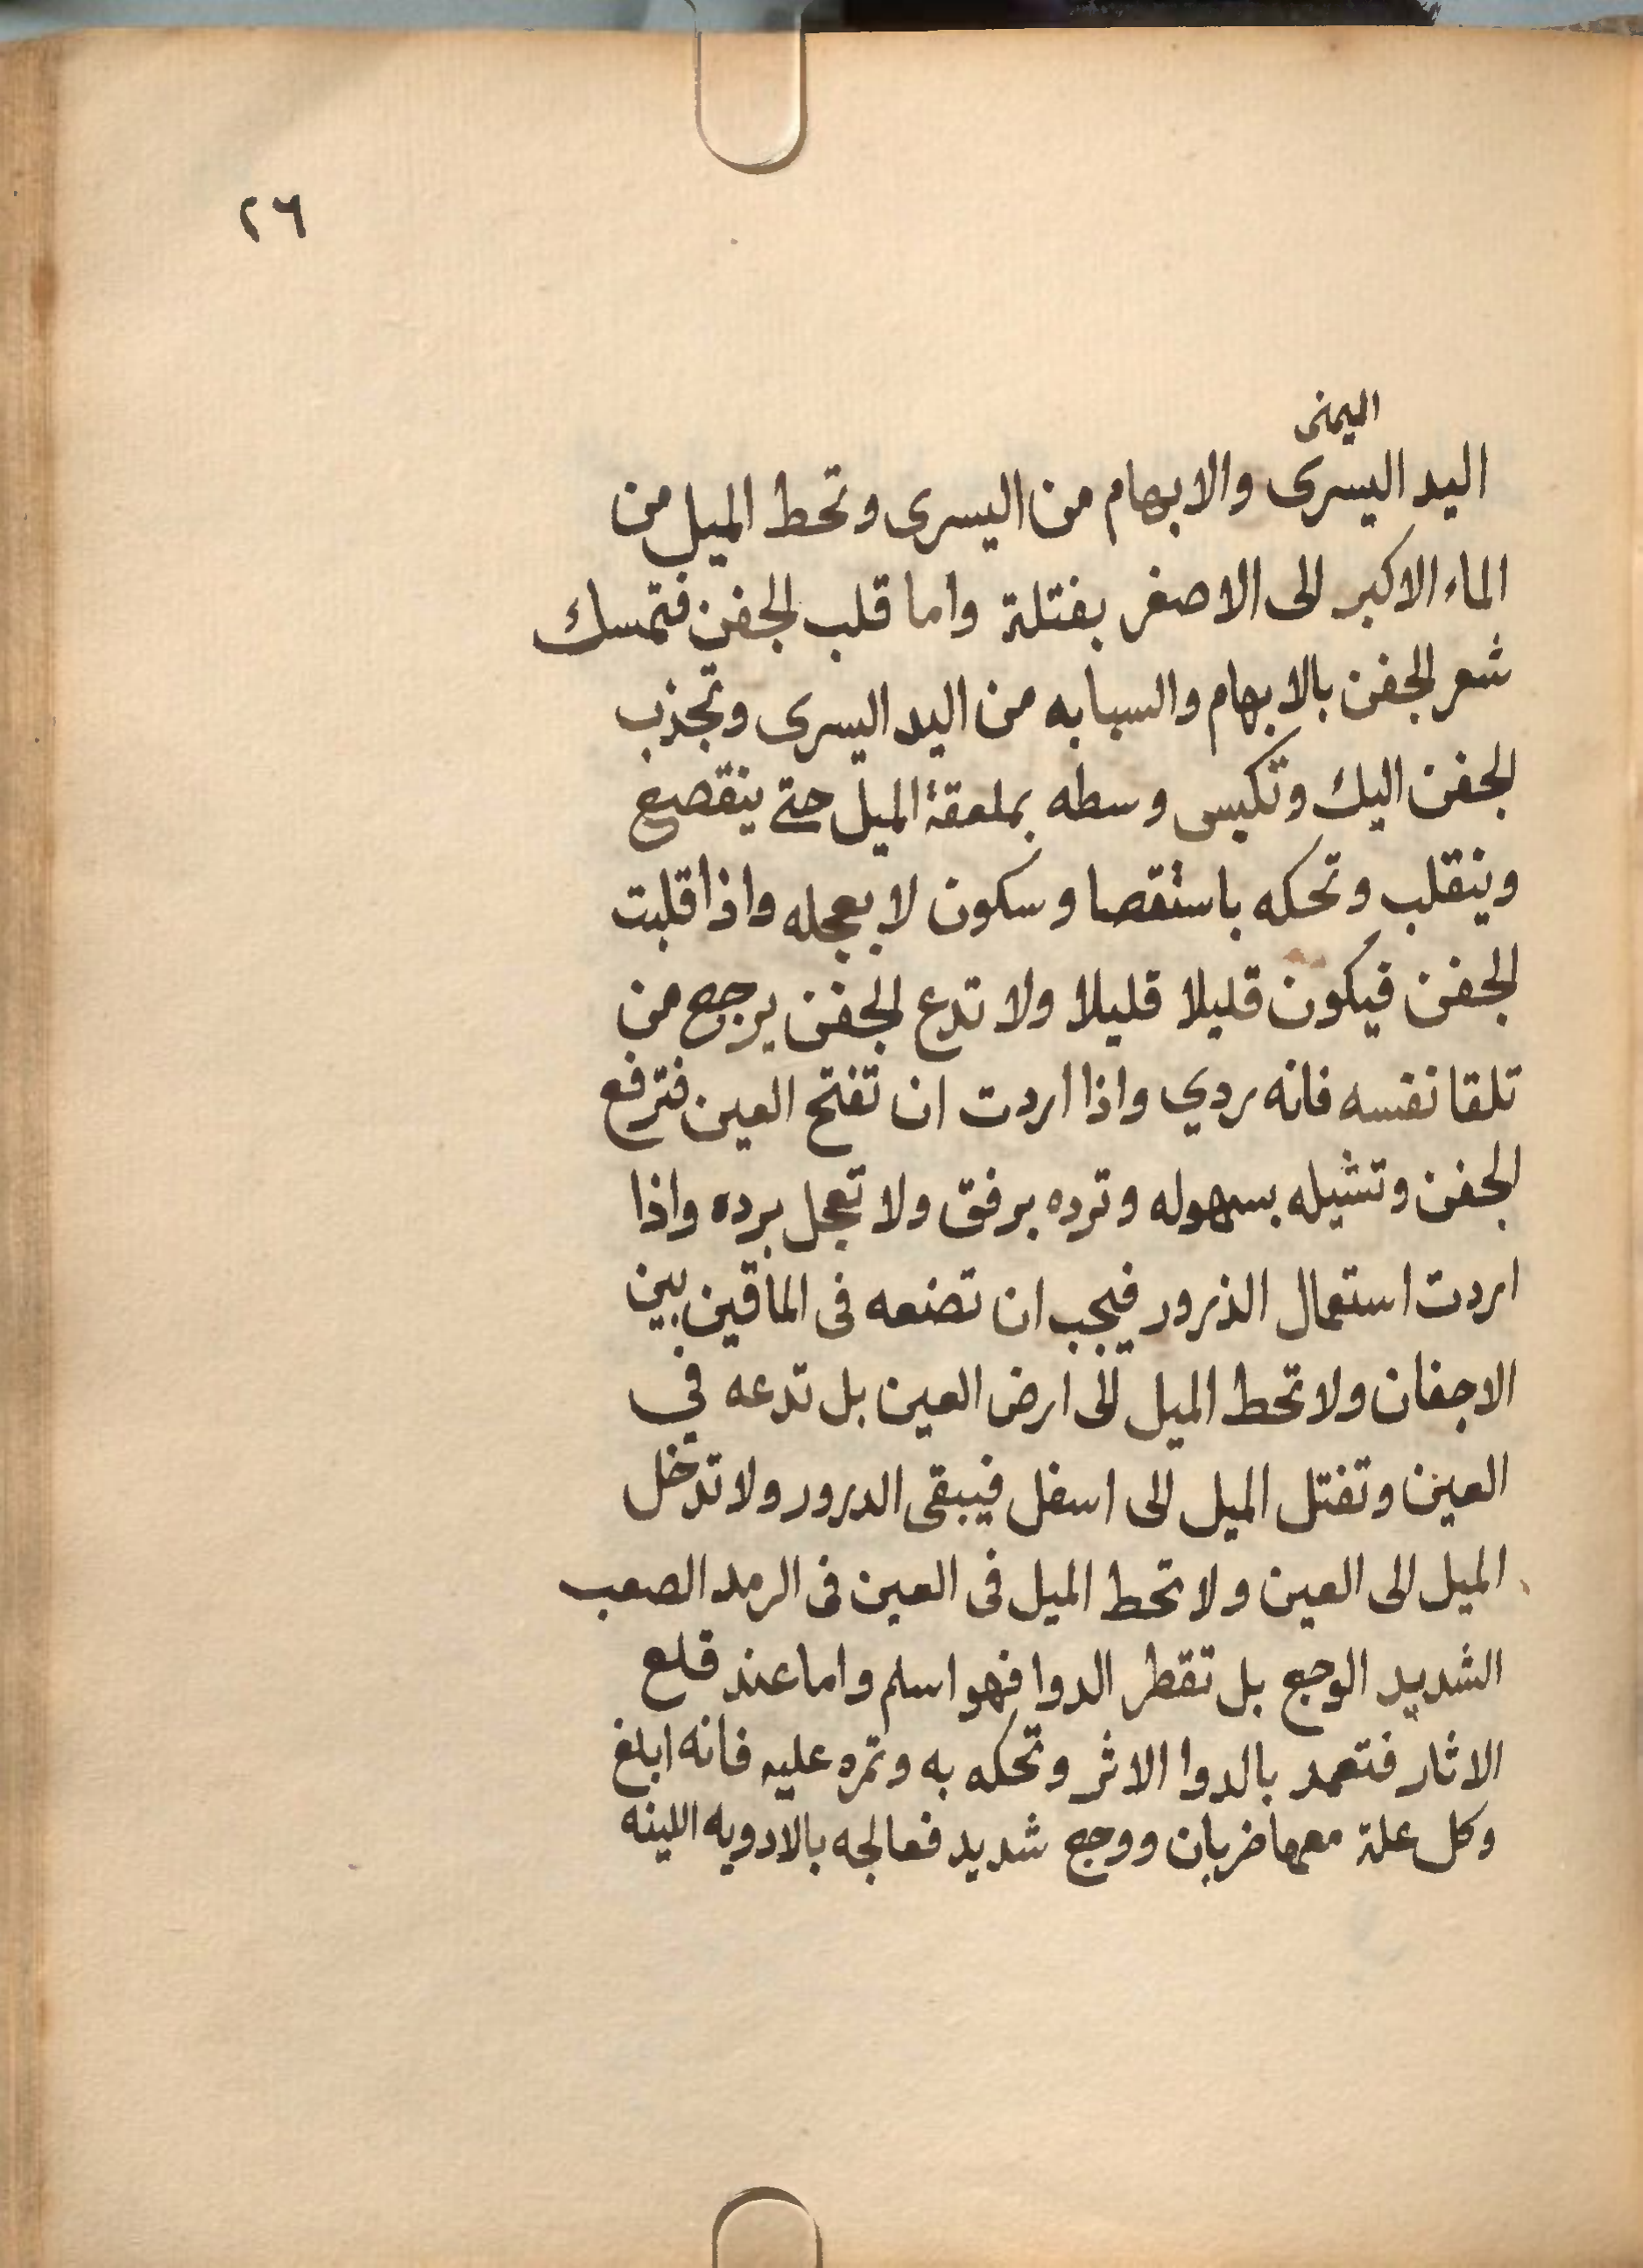 ٢٦
اليمنى
اليد اليسرى والابهام من اليسرى وتحط الميل من
الماء الاكبر الى الاصغر بفتلة واما قلب الجفن فتمسك
شعر الجفن بالابهام والسبابه من اليد اليسرى وتجذب
الجفن اليك وتكبس وسطه بملعقة الميل حتى ينقصع
وينقلب وتحكه باستقصا وسكون لا بعجله واذا قلبت
الجفن فيكون قليلا قليلا ولا تدع الجفن يرجع من
تلقا نفسه فانه ردي واذا اردت ان تفتح العين فترفع
الجفن وتشيله بسهوله وترده برفق ولا تعجل برده واذا
اردت استعمال الذرور فيجب ان تضعه فى الماقين بين
الاجفان ولا تحط الميل الى ارض العين بل تدعه في
العين وتفتل الميل الى اسفل فيبقى الدرور ولا تدخل
الميل الى العين ولا تحط الميل فى العين فى الرمد الصعب
الشديد الوجع بل تقطر الدوا فهو اسلم واما عند قلع
الاثار فتعمد بالدوا الاثر وتحكه به وتمره عليه فانه ابلغ
وكل علة معها ضربان ووجع شديد فعالجه بالادويه اللينه